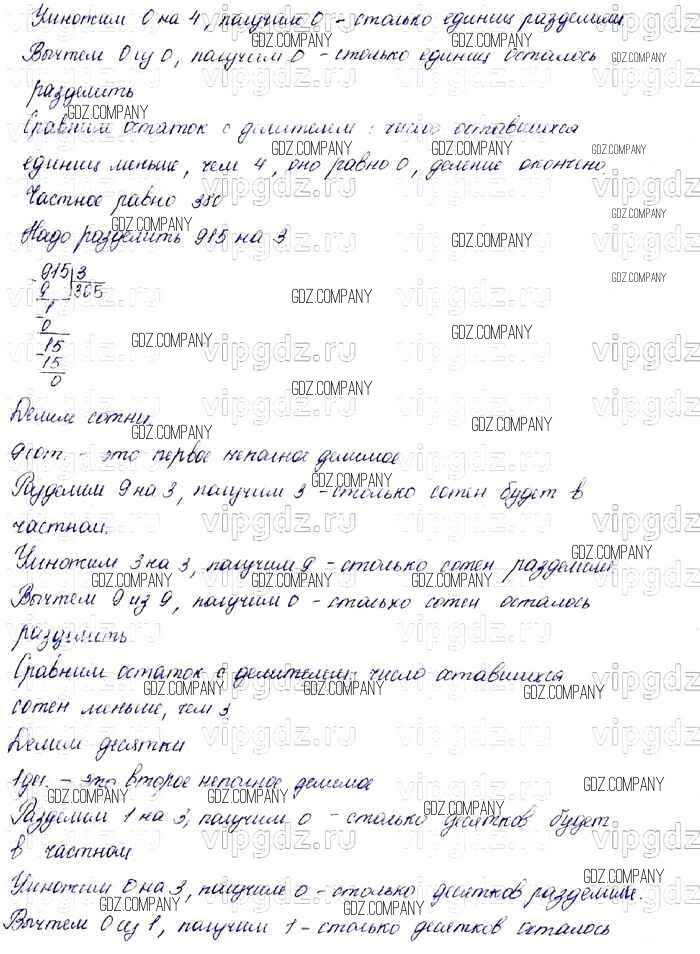 Умножим 0 на 4, получим 0 - столько единиц разделили
Вычтем 0 из 0, получим 0 - столько единиц осталось
разделить
Сравним остаток с делителем: число оставшихся
единиц меньше, чем 4, оно равно 0, деление окончено.
Частное равно 380
Надо разделить 915 на 3
915 3
9 305
1
0
15
15
0
Делим сотни
9 сот. - это первое неполное делимое
Разделим 9 на 3, получим 3 - столько сотен будет в
частном.
Умножим 3 на 3, получим 9 - столько сотен разделили
Вычтем 9 из 9, получим 0 - столько сотен осталось
разделить
Сравним остаток с делителем: число оставшихся
сотен меньше, чем 3
Делим десятки
1 дес. - это второе неполное делимое
Разделим 1 на 3, получим 0 - столько десятков будет
в частном
Умножим 0 на 3, получим 0 - столько десятков разделили.
Вычтем 0 из 1, получим 1 - столько десятков осталось
GDZ.COMPANY
vipgdz.ru